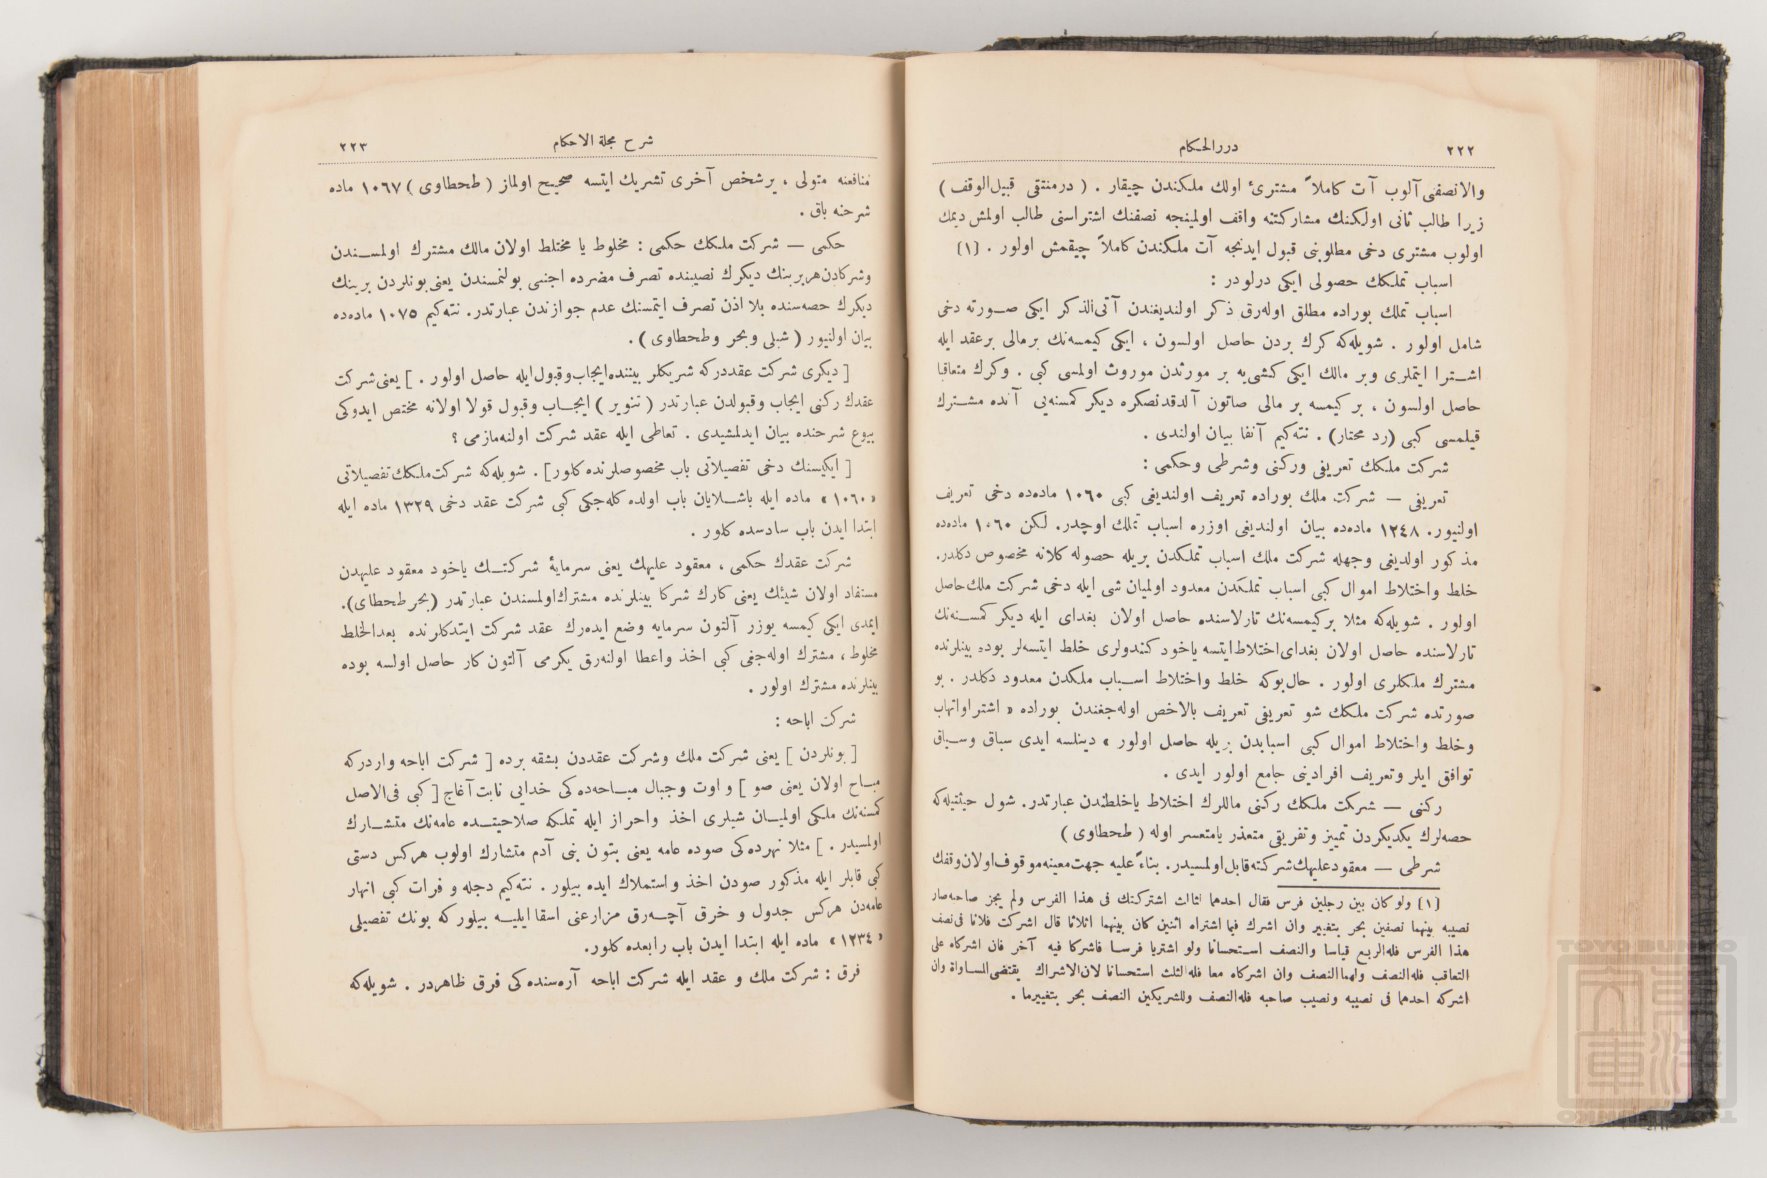 ٢٢٢
دررالحكام
والانصفنى آلوب آت كاملاً مشترئ اولك ملكندن چيقار . ( درمنتقى قبيل‌الوقف )
زيرا طالب ثانى اولكنك مشاركتنه واقف اولمينجه نصفنك اشتراسنى طالب اولمش ديمك
اولوب مشترى دخى مطلوبنى قبول ايدنجه آت ملكندن كاملاً چيقمش اولور . (١)
اسباب تملكك حصولى ايكى درلودر :
اسباب تملك بوراده مطلق اوله‌رق ذكر اولنديغندن آتى‌الذكر ايكى صورته دخى
شامل اولور . شويله‌كه كرك بردن حاصل اولسون ، ايكى كيمسه‌نك برمالى برعقد ايله
اشترا ايتملرى وبر مالك ايكى كشى‌يه بر مورثدن موروث اولمسى كبى . وكرك متعاقبا
حاصل اولسون ، بر كيمسه بر مالى صاتون آلدقدنصكره ديكر كمسنه‌يى آنده مشترك
قيلمسى كبى (رد محتار) . نته‌كيم آنفا بيان اولندى .
شركت ملكك تعريفى وركنى وشرطى وحكمى :
تعريفى — شركت ملك بوراده تعريف اولنديغى كبى ١٠٦٠ ماده‌ده دخى تعريف
اولنيور. ١٢٤٨ ماده‌ده بيان اولنديغى اوزره اسباب تملك اوچدر. لكن ١٠٦٠ ماده‌ده
مذكور اولديغى وجهله شركت ملك اسباب تملكدن بريله حصوله كلانه مخصوص دكلدر.
خلط واختلاط اموال كبى اسباب تملكدن معدود اولميان شى ايله دخى شركت ملك حاصل
اولور . شويله‌كه مثلا بركيمسه‌نك تارلاسنده حاصل اولان بغداى ايله ديكر كمسنه‌نك
تارلاسنده حاصل اولان بغداى اختلاط ايتسه ياخود كندولرى خلط ايتسه‌لر بوده بينلرنده
مشترك ملكلرى اولور . حال‌بوكه خلط واختلاط اسباب ملكدن معدود دكلدر . بو
صورتده شركت ملكك شو تعريفى تعريف بالاخص اوله‌جغندن بوراده « اشترا واتهاب
وخلط واختلاط اموال كبى اسبابدن بريله حاصل اولور » دينلسه ايدى سباق وسياق
توافق ايلر وتعريف افرادينى جامع اولور ايدى .
ركنى — شركت ملكك ركنى ماللرك اختلاط ياخلطندن عبارتدر. شول حيثيتله‌كه
حصه‌لرك يكديكردن تمييز وتفريقى متعذر يامتعسر اوله ( طحطاوى )
شرطى — معقودعليهك شركته قابل اولمسيدر. بناءً عليه جهت معينه موقوف اولان وقفك
(١) ولوكان بين رجلين فرس فقال احدهما لثالث اشركتك فى هذا الفرس ولم يجز صاحبه صار
نصيبه بينهما نصفين بحر بتغيير وان اشرك فيما اشتراه اثنين كان بينهما اثلاثا قال اشركت فلانا فى نصف
هذا الفرس فله الربع قياسا والنصف استحسانا ولو اشتريا فرسا فاشركا فيه آخر فان اشركاه على
التعاقب فله النصف ولهما النصف وان اشركاه معا فله الثلث استحسانا لان الاشراك يقتضى المساواة وان
اشركه احدهما فى نصيبه ونصيب صاحبه فله النصف وللشريكين النصف بحر بتغييرما .
شرح مجلة الاحكام
٢٢٣
منافعنه متولى ، برشخص آخرى تشريك ايتسه صحيح اولماز ( طحطاوى ) ١٠٦٧ ماده
شرحنه باق .
حكمى — شركت ملكك حكمى : مخلوط يا مختلط اولان مالك مشترك اولمسندن
وشركادن هربرينك ديكرك نصيبنده تصرف مضرده اجنبى بولنمسندن يعنى بونلردن برينك
ديكرك حصه‌سنده بلا اذن تصرف ايتمسنك عدم جوازندن عبارتدر. نته‌كيم ١٠٧٥ ماده‌ده
بيان اولنيور ( شبلى وبحر وطحطاوى ) .
[ ديكرى شركت عقددركه شريكلر بيننده ايجاب وقبول ايله حاصل اولور . ] يعنى شركت
عقدك ركنى ايجاب وقبولدن عبارتدر ( تنوير ) ايجاب وقبول قولا اولانه مختص ايدوكى
بيوع شرحنده بيان ايدلمشيدى . تعاطى ايله عقد شركت اولنه‌مازمى ؟
[ ايكيسنك دخى تفصيلاتى باب مخصوصلرنده كلور] . شويله‌كه شركت ملكك تفصيلاتى
« ١٠٦٠ » ماده ايله باشلايان باب اولده كله‌جكى كبى شركت عقد دخى ١٣٢٩ ماده ايله
ابتدا ايدن باب سادسده كلور .
شركت عقدك حكمى ، معقود عليهك يعنى سرمايۀ شركتك ياخود معقود عليهدن
مستفاد اولان شيئك يعنى كارك شركا بينلرنده مشترك اولمسندن عبارتدر (بحر طحطاى).
ايمدى ايكى كيمسه يوزر آلتون سرمايه وضع ايده‌رك عقد شركت ايتدكلرنده بعدالخلط
مخلوط ، مشترك اوله‌جغى كبى اخذ واعطا اولنه‌رق يكرمى آلتون كار حاصل اولسه بوده
بينلرنده مشترك اولور .
شركت اباحه :
[ بونلردن ] يعنى شركت ملك وشركت عقددن بشقه برده [ شركت اباحه واردركه
مباح اولان يعنى صو ] و اوت وجبال مباحه‌ده‌كى خدايى نابت آغاج [ كبى فى‌الاصل
كمسنه‌نك ملكى اولميان شيلرى اخذ واحراز ايله تملكه صلاحيتده عامه‌نك متشارك
اولمسيدر . ] مثلا نهرده‌كى صوده عامه يعنى بتون بنى آدم متشارك اولوب هركس دستى
كبى قابلر ايله مذكور صودن اخذ واستملاك ايده بيلور . نته‌كيم دجله و فرات كبى انهار
عامه‌دن هركس جدول و خرق آچه‌رق مزارعنى اسقا ايليه بيلور كه بونك تفصيلى
« ١٢٣٤ » ماده ايله ابتدا ايدن باب رابعده كلور.
فرق : شركت ملك و عقد ايله شركت اباحه آره‌سنده‌كى فرق ظاهردر . شويله‌كه